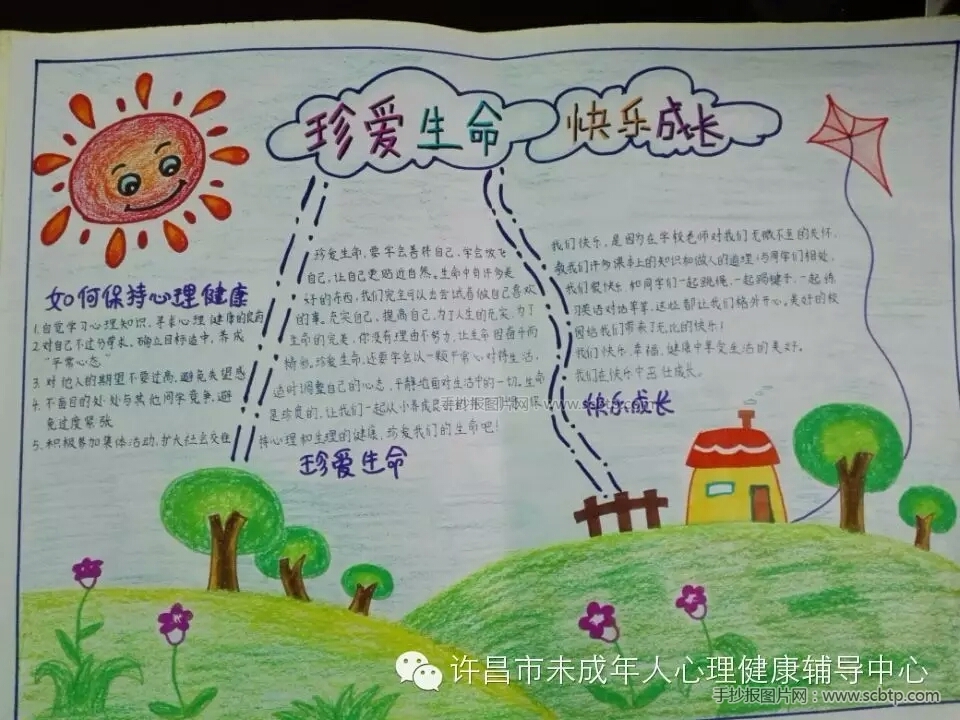 珍爱生命 快乐成长
如何保持心理健康
1.自觉学习心理知识,寻求心理健康的良药
2.对自己不过分苛求,确立目标适中,养成
"平常心态"
3.对他人的期望不要过高,避免失望感
4.不盲目的处处与其他同学竞争,避
免过度紧张
5.积极参加集体活动,扩大社会交往
珍爱生命,要学会善待自己,学会放飞
自己,让自己更贴近自然。生命中有许多美
好的东西,我们完全可以去尝试着做自己喜欢
的事。充实自己,提高自己,为了人生的充实,为了
生命的完美,你没有理由不努力,让生命因奋斗而
精彩。珍爱生命,还要学会以一颗平常心对待生活,
适时调整自己的心态,平静地面对生活中的一切。生命
是珍贵的,让我们一起从小养成良好的
持心理和生理的健康,珍爱我们的生命吧!
珍爱生命
我们快乐,是因为在学校老师对我们无微不至的关怀,
教我们许多课本上的知识和做人的道理;与同学们相处,
我们很快乐,如同学们一起跳绳,一起踢毽子,一起练
习英语对话等等,这些都让我们格外开心。美好的校
园给我们带来了无比的快乐!
我们快乐,幸福,健康中享受生活的美好。
我们在快乐中茁壮成长。
快乐成长
手抄报图片网:www.scbtp.com
许昌市未成年人心理健康辅导中心
手抄报图片网:www.scbtp.com